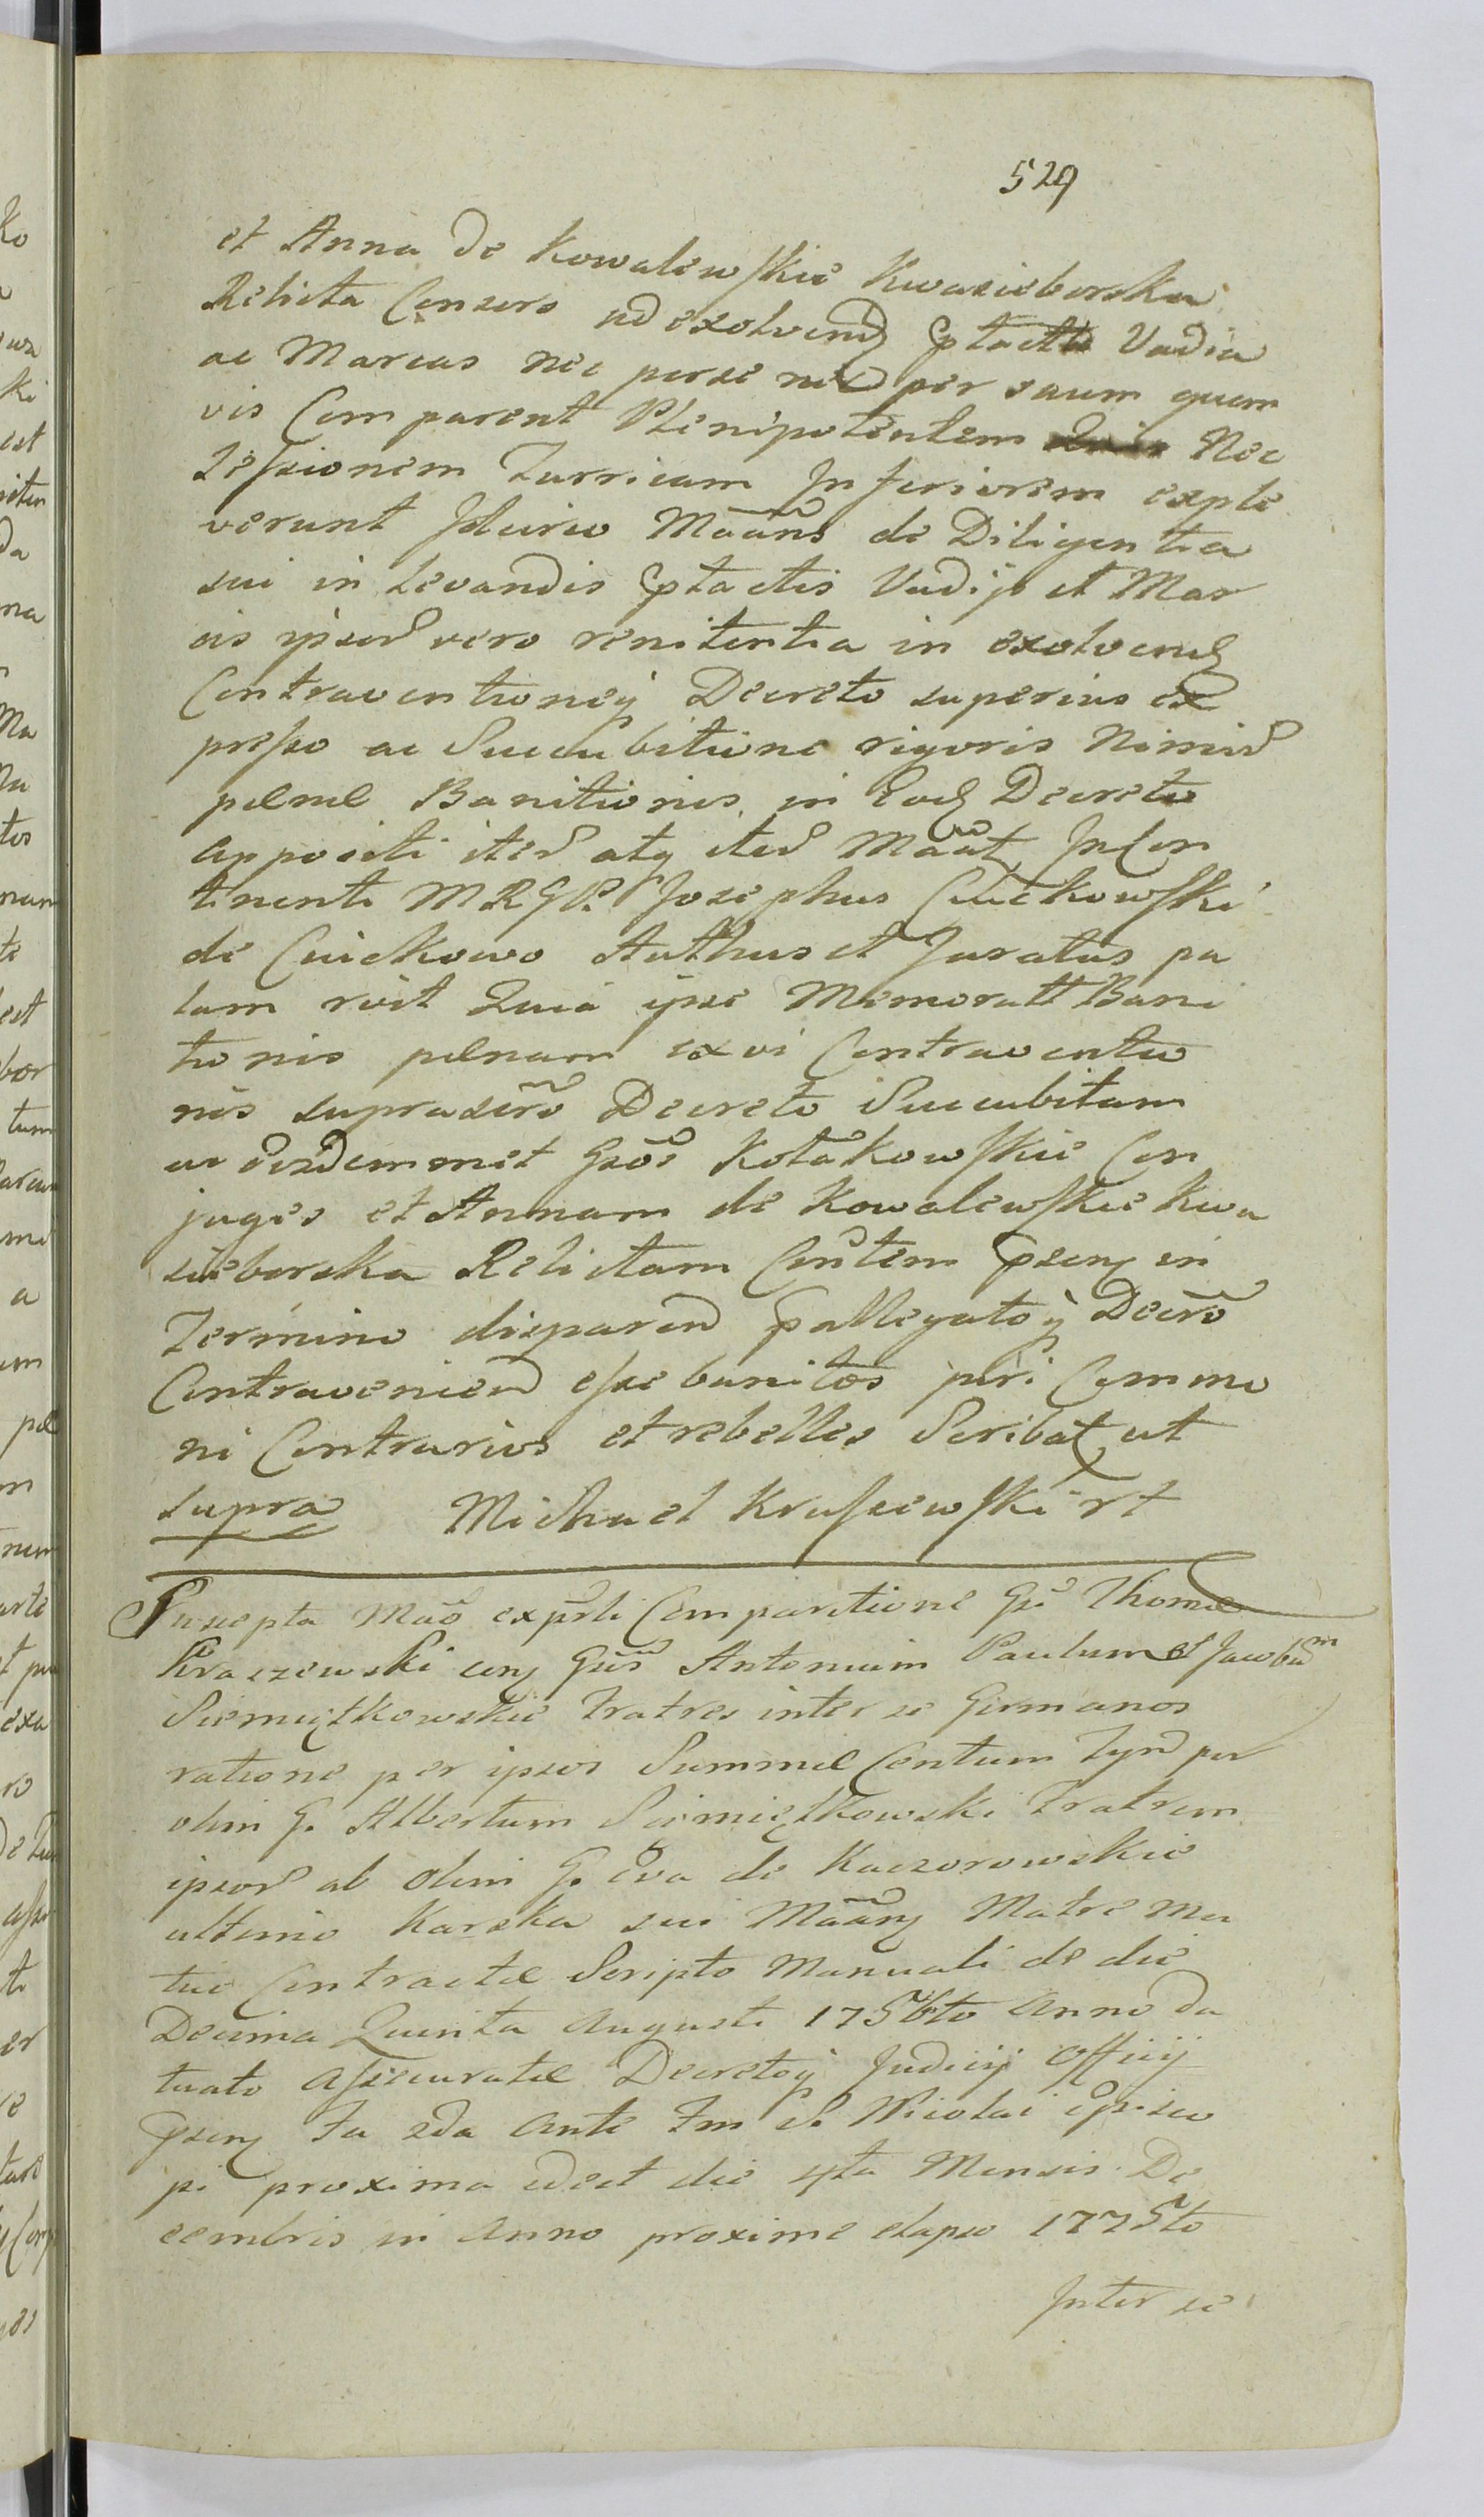 529
et Anna de Kowalewskie Kwasieborska
Relicta Consors ad exolvend ptacta Vadia
ac Marcas nec per se nec per suum quem
vis Comparent Plenipotentem Nec
Sessionem Turricam Inferiorem exple
verunt Ideirco Mãan̄s de Diligentia
sui in levandis ptactis Vadijs et Mar
cis ipsor vero renitentia in exolvend
Contraventioneq Decreto superius ex
presso ac Succubitione rigoris Nimir
pænæ Banitionis in Eod Decreto
appositi iter atq iter Mãat Incon
tinenti M R G D. Josephus Cwiekowski
de Cwiekowo Authus et Juratus pa
lam rvit Quia ipse Memoratt Bani
tionis pænam ex vi Contraventio
nis suprascr̃o Decreto Succubitam
ac Eosdemmet Gsõs Kołakowskie Con
juges et Annam de Kowalewskie Kwa
sieborska Relictam Con̄tem psenq in
Termino disparen pallegatoq Decr̃o
Contravenien esse banitos juri Commu
ni Contrarios et rebelles Scribat ut
supra Michael Krussewski rt
Suscepta Mão exp̃rli Comparitione Gsĩ Thomæ
Kraszewski conq Gsũs Antonium Paulum et Jacobũm
Siemiątkowskie Fratres inter se Germanos
ratione per ipsos Summæ Centum Tyn per
olim G. Albertum Siemiątkowski Fratrem
ipsor ab olim G. Eva de Kaczorowskie
ultimo Karska sui Mãanq Matre Mu
tuo Contractæ Scripto Manuali de die
Decima Quinta Augusti 1756to Anno da
tuato Assecuratæ Decretoq Judicij Officij
psenq Fa 2da Ante Fm S. Nicolai Episco
pi proxima idest die 4ta Mensis De
cembris in Anno proxime elapso 1775to
Inter se